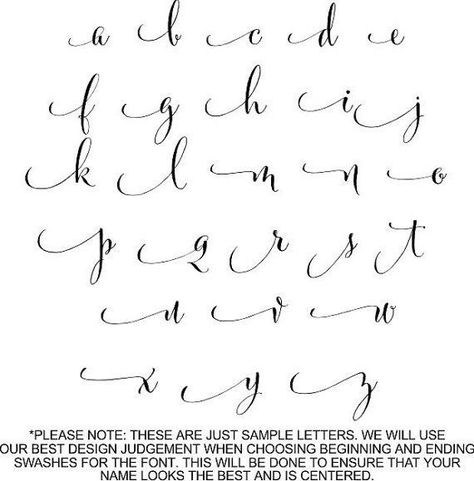 a b c d e
f g h i j
k l m n o
p q r s t
u v w
x y z
*PLEASE NOTE: THESE ARE JUST SAMPLE LETTERS. WE WILL USE
OUR BEST DESIGN JUDGEMENT WHEN CHOOSING BEGINNING AND ENDING
SWASHES FOR THE FONT. THIS WILL BE DONE TO ENSURE THAT YOUR
NAME LOOKS THE BEST AND IS CENTERED.